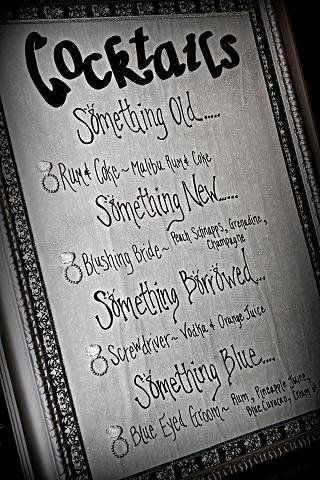 Cocktails
Something Old.....
Rum & Coke ~ Malibu Rum & Coke
Something New......
Blushing Bride ~ Peach Schnapp's, Grenadine,
Champagne
Something Borrowed...
Screwdriver ~ Vodka & Orange Juice
Something Blue....
Blue Eyed Groom ~ Rum, Pineapple Juice,
Blue Curacao, Cream